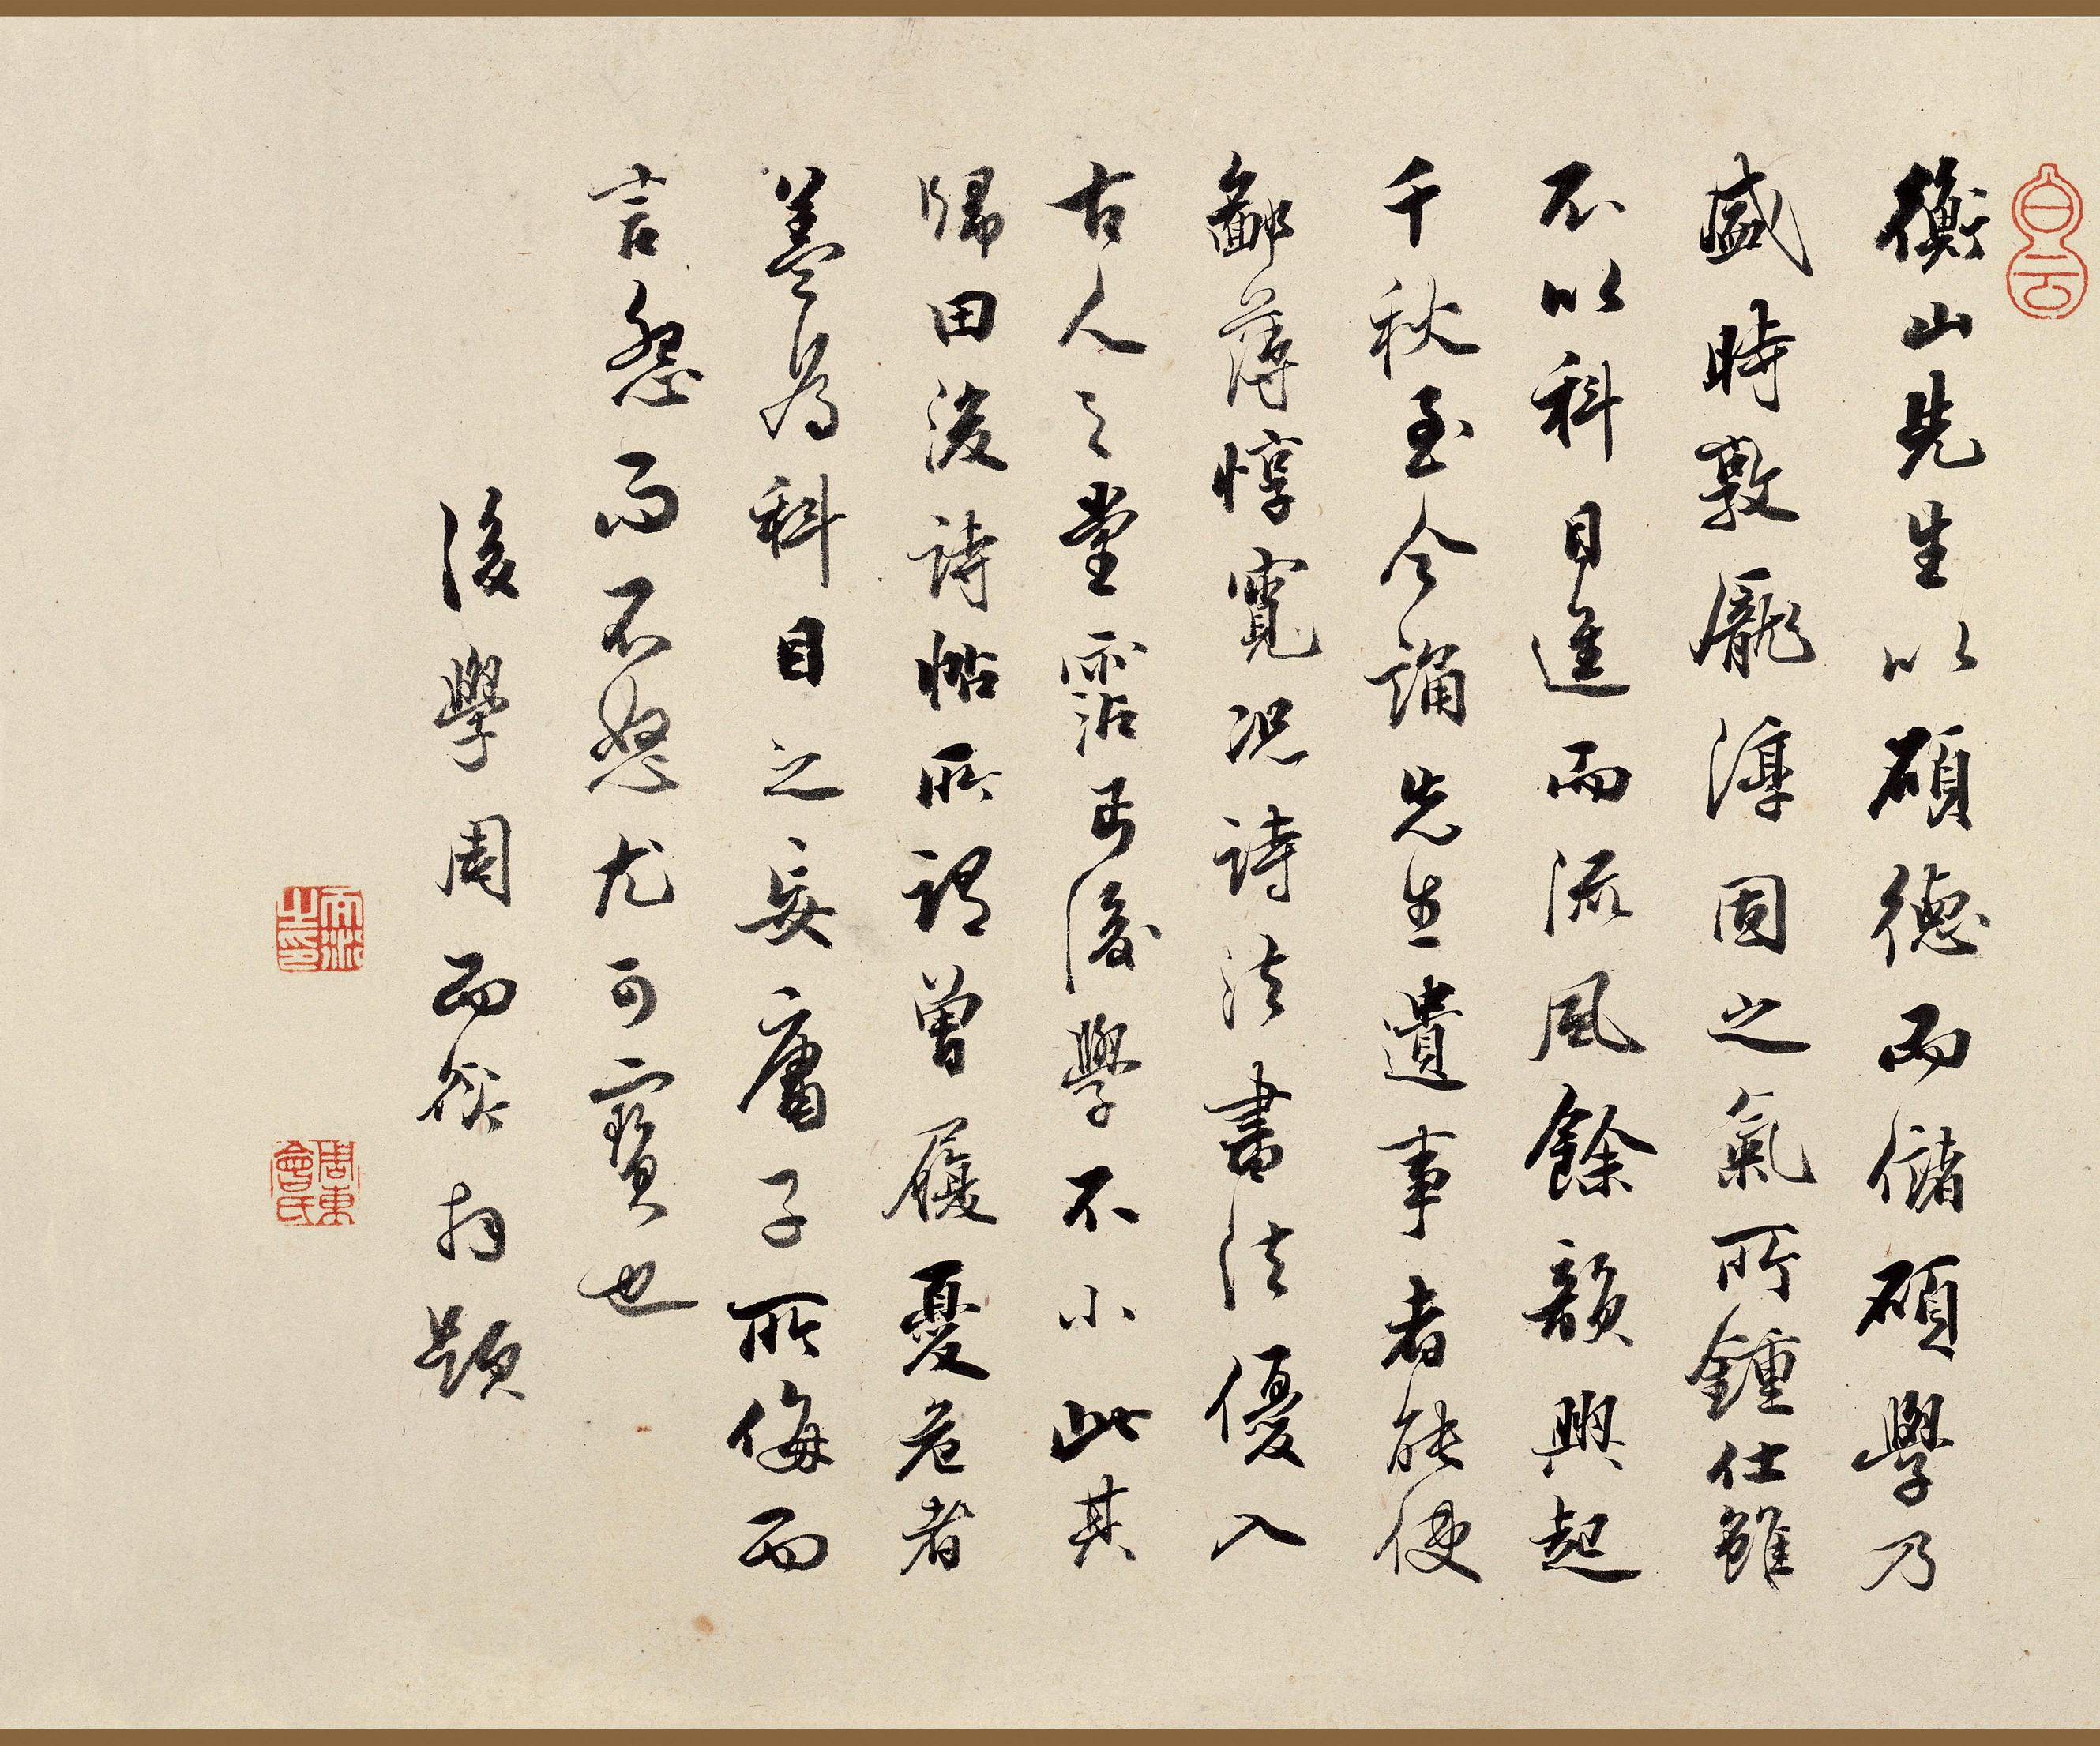 白云
衡山先生以碩德而儲碩學乃
盛時敦龐淳固之氣所鍾仕雖
不以科目進而流風餘韻興起
千秋至今誦先生遺事者能使
鄙薄惇寬況詩法書法優入
古人之堂霑丐後學不小此其
歸田後詩帖所謂曾履憂危者
蓋為科目之妄庸子所侮而
言怨而不怒尤可寶也
後學周而衍拜題
而衍之印
周東會氏